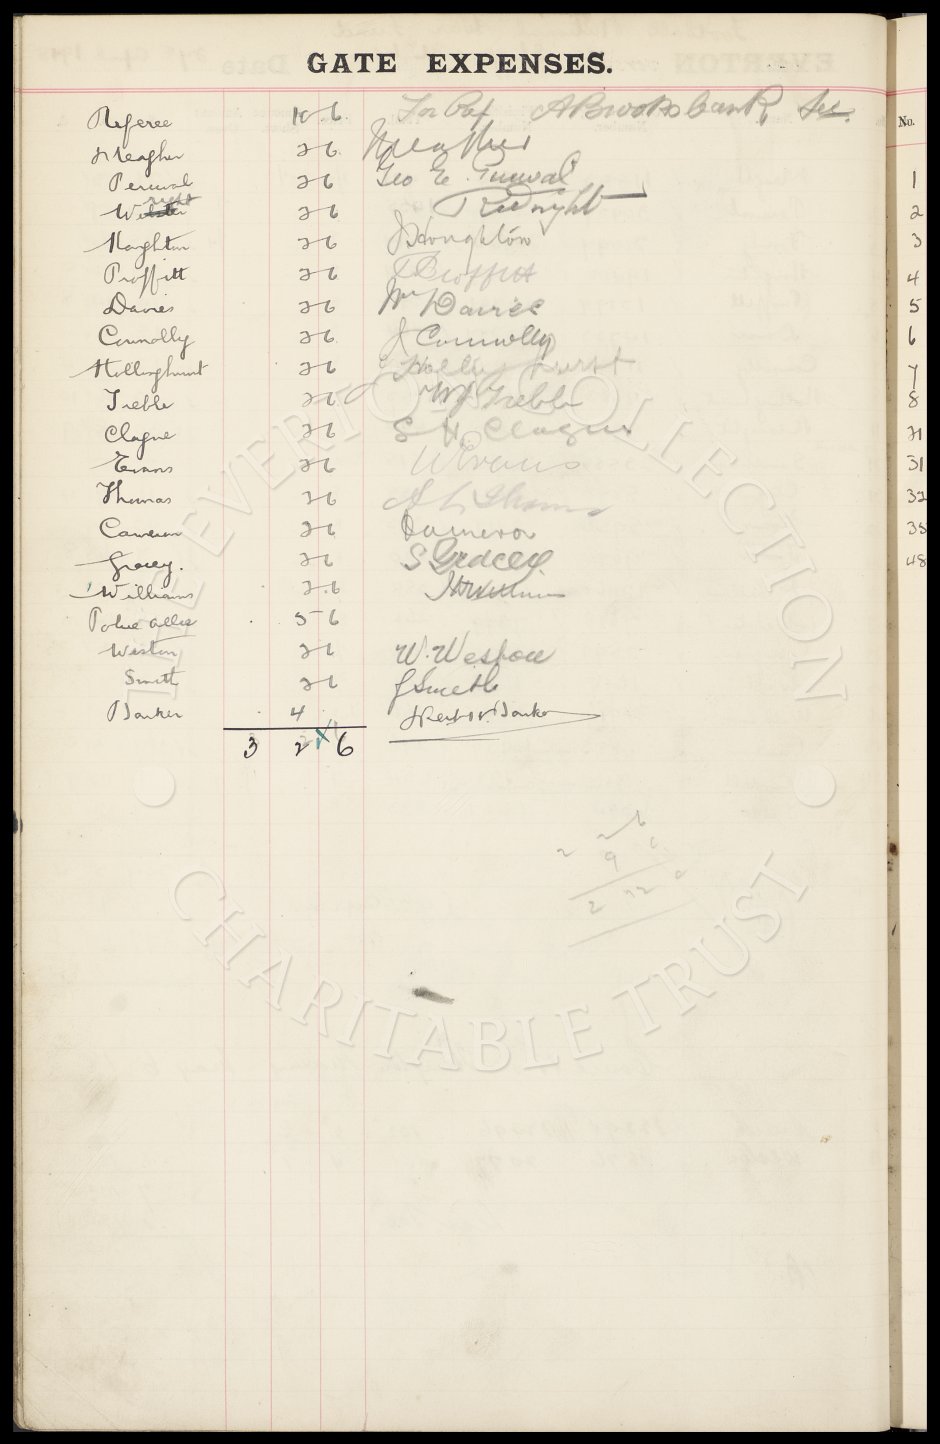 GATE EXPENSES.
Referee 10 6 For Ref A Brooksbank, Sec.
Meagher 2 6 Meagher
Percival 2 6 Geo E. Percival
Wright 2 6 R Wright
Houghton 2 6 J Houghton
Proffitt 2 6 J Proffitt
Davies 2 6 Wm Davies
Connolly 2 6 J Connolly
Hollinghurst 2 6
Treble 2 6 W J Treble
Clague 2 6 S H. Clague
Evans 2 6 W Evans
Thomas 2 6 A L Thomas
Cameron 2 6 D Cameron
Gracey. 2 6 S Gracey
Williams 2 6 H Williams
Police 5 6
Weston 2 6 W. Weston
Smith 2 6 J Smith
Banker 4 Banker
3 2 6
2 2 6
9
2
No.
1
2
3
4
5
6
7
8
21
31
32
38
48
THE EVERTON COLLECTION
CHARITABLE TRUST